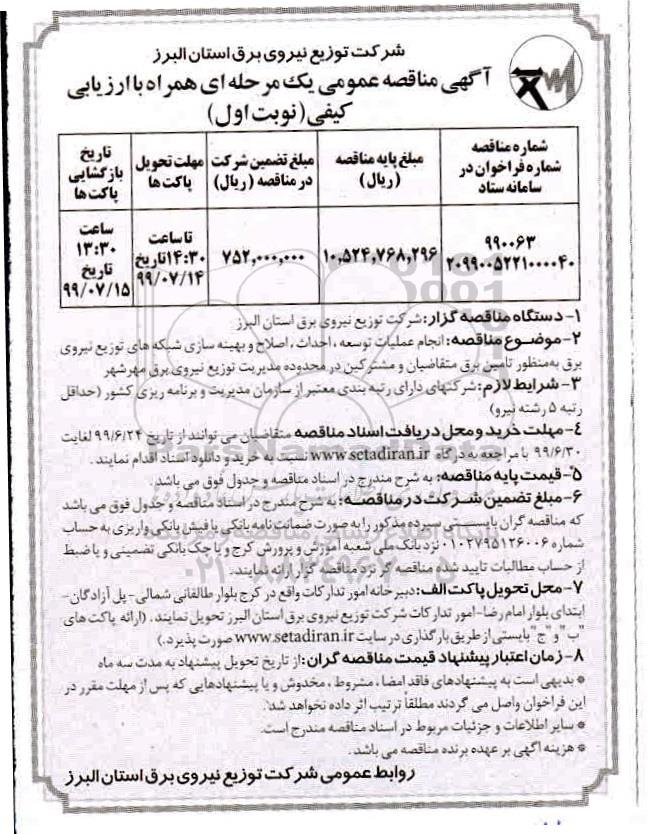 شرکت توزیع نیروی برق استان البرز
آگهی مناقصه عمومی یک مرحله ای همراه با ارزیابی
کیفی (نوبت اول)
شماره مناقصه
شماره فراخوان در
سامانه ستاد
مبلغ پایه مناقصه
(ریال)
مبلغ تضمین شرکت
در مناقصه (ریال)
مهلت تحویل
پاکت ها
تاریخ
بازگشایی
پاکت ها
۹۹۰۰۶۳
۲۰۹۹۰۰۵۲۲۱۰۰۰۰۴۰
۱۰,۵۲۴,۷۶۸,۲۹۶
۷۵۲,۰۰۰,۰۰۰
تا ساعت
۱۴:۳۰ تاریخ
۹۹/۰۷/۱۴
ساعت
۱۳:۳۰
تاریخ
۹۹/۰۷/۱۵
۱- دستگاه مناقصه گزار: شرکت توزیع نیروی برق استان البرز
۲- موضوع مناقصه: انجام عملیات توسعه ، احداث ، اصلاح و بهینه سازی شبکه های توزیع نیروی
برق به‌منظور تامین برق متقاضیان و مشترکین در محدوده مدیریت توزیع نیروی برق مهرشهر
۳- شرایط لازم: شرکتهای دارای رتبه بندی معتبر از سازمان مدیریت و برنامه ریزی کشور (حداقل
رتبه ۵ رشته نیرو)
۴- مهلت خرید و محل دریافت اسناد مناقصه متقاضیان می توانند از تاریخ ۹۹/۶/۲۴ لغایت
۹۹/۶/۳۰ با مراجعه به درگاه www.setadiran.ir نسبت به خرید و دانلود اسناد اقدام نمایند .
۵- قیمت پایه مناقصه: به شرح مندرج در اسناد مناقصه و جدول فوق می باشد .
۶- مبلغ تضمین شرکت در مناقصه: به شرح مندرج در اسناد مناقصه و جدول فوق می باشد
که مناقصه گران بایستی سپرده مذکور را به صورت ضمانت نامه بانکی یا فیش بانکی واریزی به حساب
شماره ۰۱۰۲۷۹۵۱۲۶۰۰۶ نزد بانک ملی شعبه آموزش و پرورش کرج و یا چک بانکی تضمینی و یا ضبط
از حساب مطالبات تایید شده مناقصه گر نزد مناقصه گزار ارائه نمایند .
۷- محل تحویل پاکت الف: دبیرخانه امور تدارکات واقع در کرج بلوار طالقانی شمالی - پل آزادگان -
ابتدای بلوار امام رضا - امور تدارکات شرکت توزیع نیروی برق استان البرز تحویل نمایند . (ارائه پاکت های
"ب" و "ج" بایستی از طریق بارگذاری در سایت www.setadiran.ir صورت پذیرد .)
۸- زمان اعتبار پیشنهاد قیمت مناقصه گران: از تاریخ تحویل پیشنهاد به مدت سه ماه
* بدیهی است به پیشنهادهای فاقد امضا ، مشروط ، مخدوش و یا پیشنهادهایی که پس از مهلت مقرر در
این فراخوان واصل می گردند مطلقاً ترتیب اثر داده نخواهد شد .
* سایر اطلاعات و جزئیات مربوط در اسناد مناقصه مندرج است .
* هزینه آگهی بر عهده برنده مناقصه می باشد .
روابط عمومی شرکت توزیع نیروی برق استان البرز